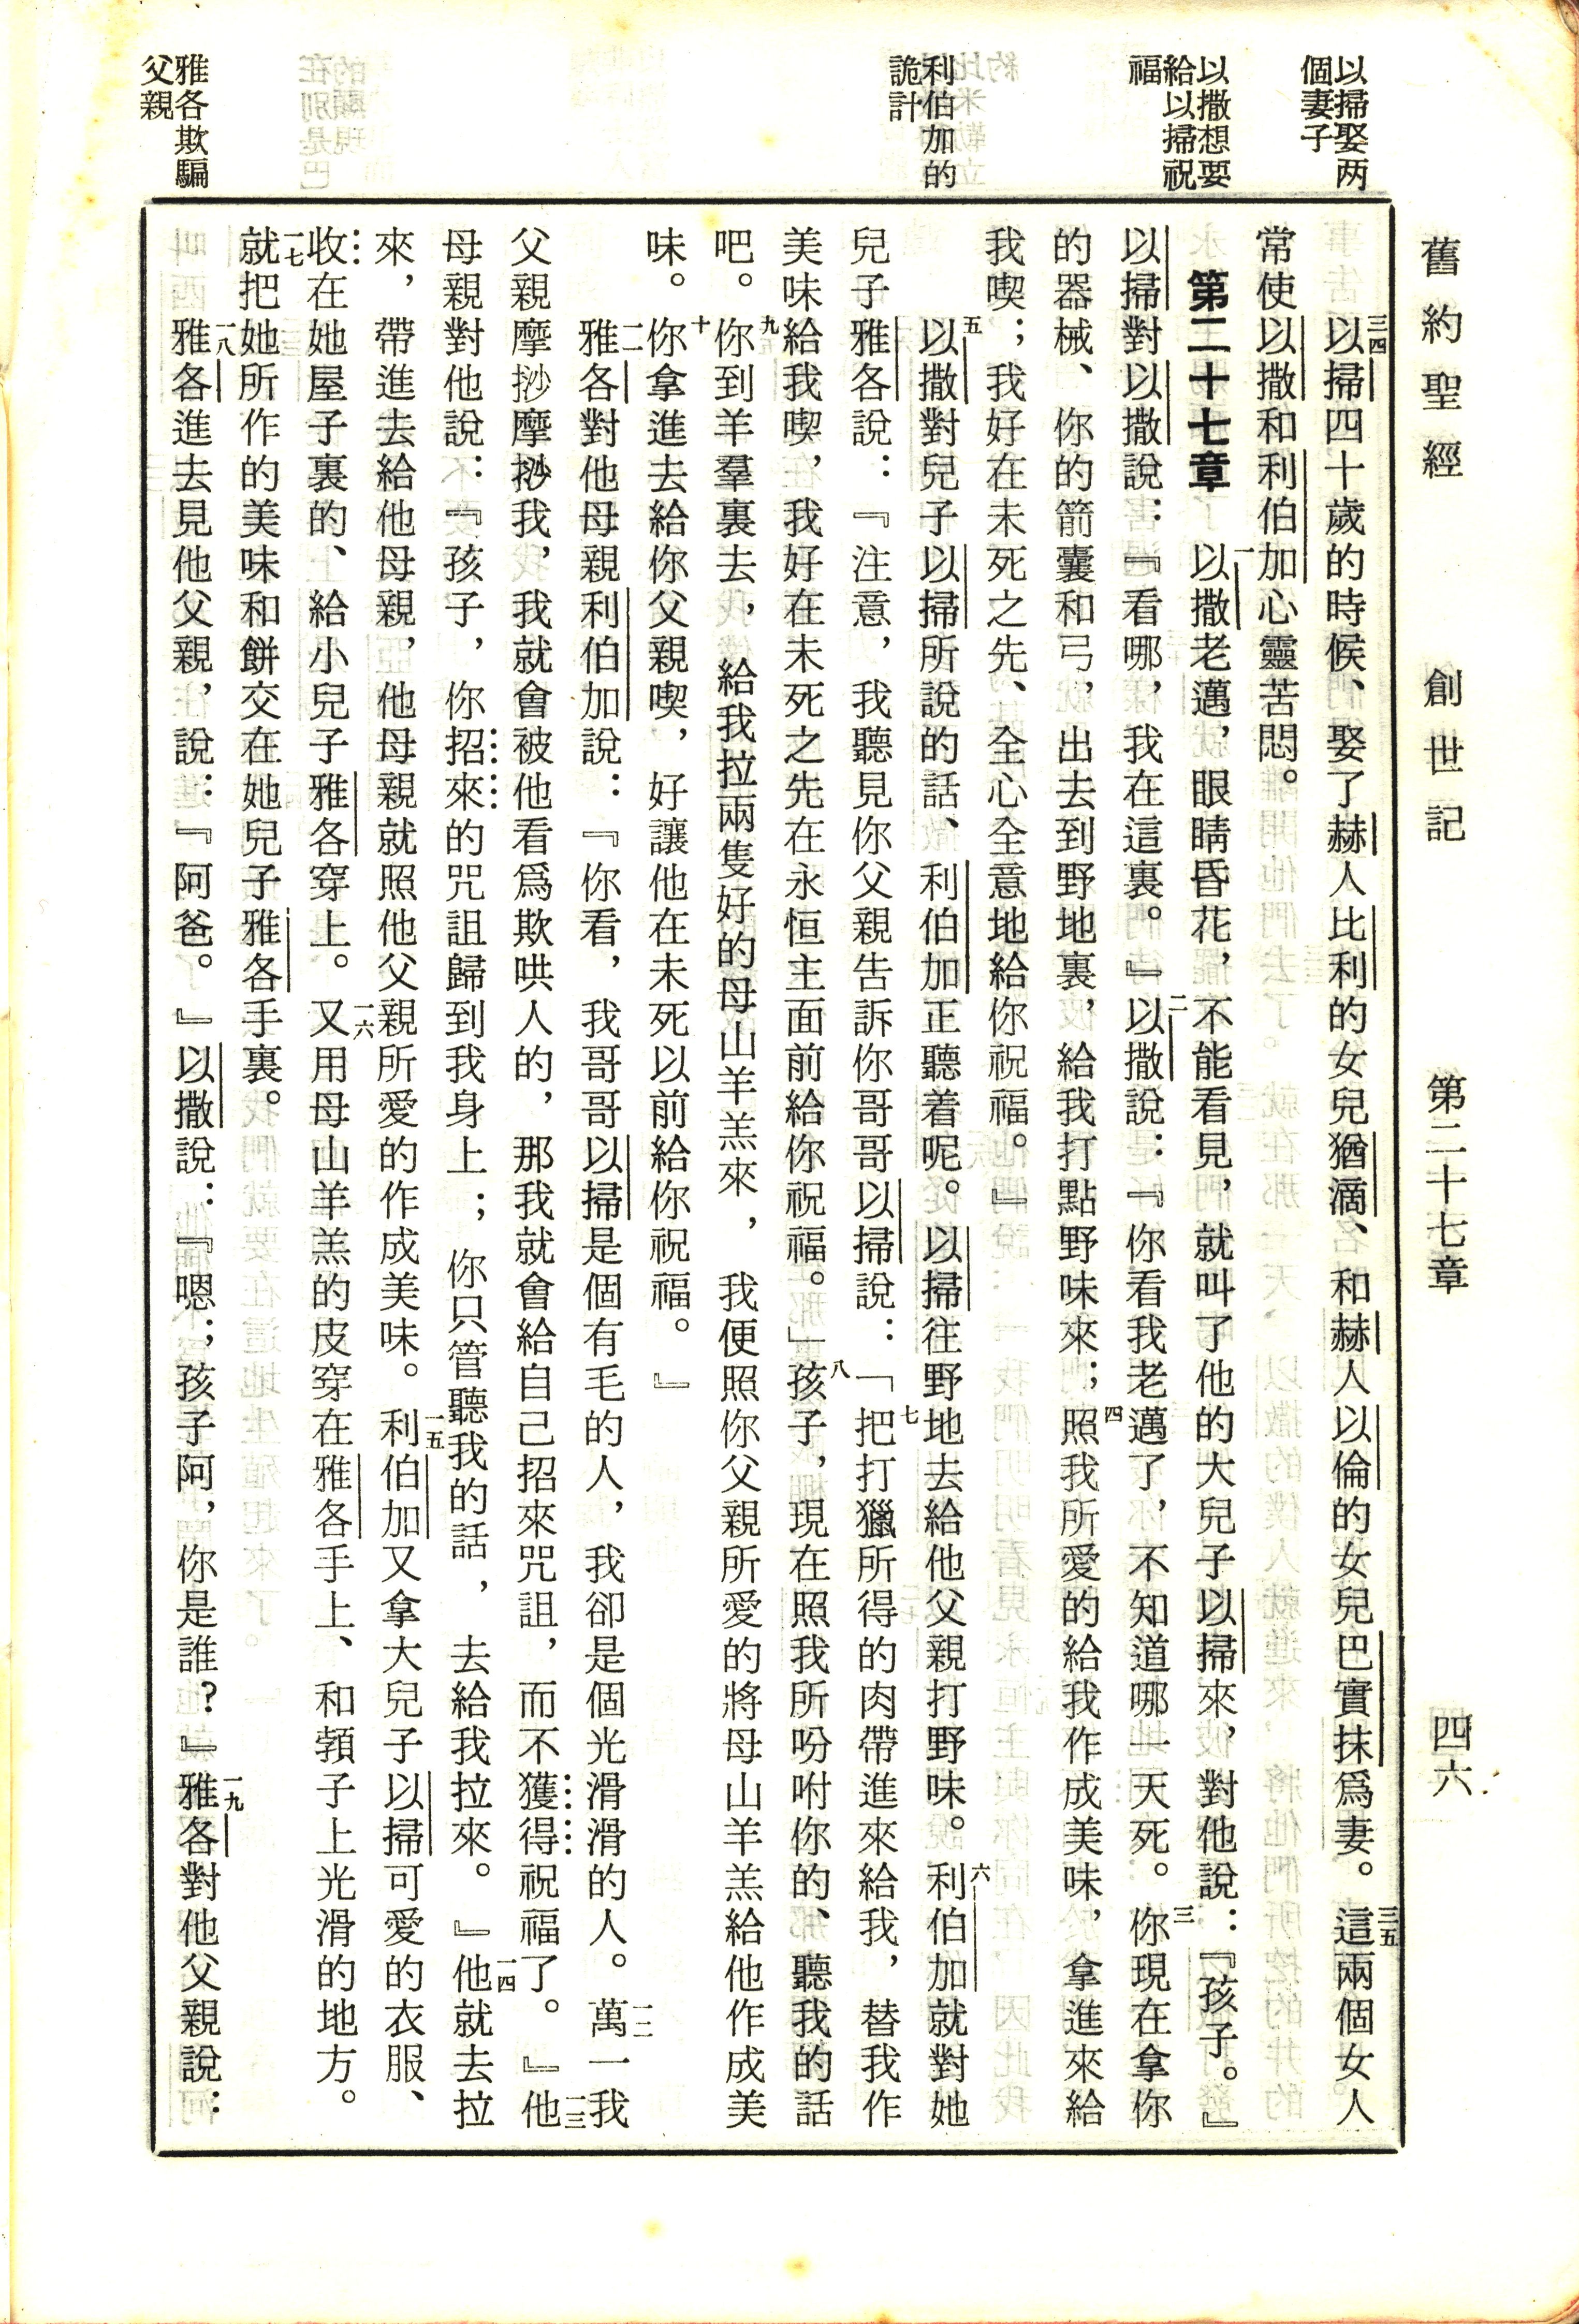 舊約聖經　創世記　第二十七章　四六
以掃娶两
個妻子
以撒想要
給以掃祝
福
利伯加的
詭計
雅各欺騙
父親
三四以掃四十歲的時候、娶了赫人比利的女兒猶滴、和赫人以倫的女兒巴實抹爲妻。三五這兩個女人
常使以撒和利伯加心靈苦悶。
第二十七章　一以撒老邁，眼睛昏花，不能看見，就叫了他的大兒子以掃來，對他說：『孩子。』
以掃對以撒說：『看哪，我在這裏。』二以撒說：『你看我老邁了，不知道哪一天死。三你現在拿你
的器械、你的箭囊和弓，出去到野地裏，給我打點野味來；四照我所愛的給我作成美味，拿進來給
我喫；我好在未死之先、全心全意地給你祝福。』
五以撒對兒子以掃所說的話、利伯加正聽着呢。以掃往野地去給他父親打野味。六利伯加就對她
兒子雅各說：『注意，我聽見你父親告訴你哥哥以掃說：七「把打獵所得的肉帶進來給我，替我作
美味給我喫，我好在未死之先在永恒主面前給你祝福。」八孩子，現在照我所吩咐你的、聽我的話
吧。九你到羊羣裏去，給我拉兩隻好的母山羊羔來，我便照你父親所愛的將母山羊羔給他作成美
味。十你拿進去給你父親喫，好讓他在未死以前給你祝福。』
一一雅各對他母親利伯加說：『你看，我哥哥以掃是個有毛的人，我卻是個光滑滑的人。一二萬一我
父親摩挱摩挱我，我就會被他看爲欺哄人的，那我就會給自己招來咒詛，而不獲得祝福了。』一三他
母親對他說：『孩子，你招來的咒詛歸到我身上；你只管聽我的話，去給我拉來。』一四他就去拉
來，帶進去給他母親，他母親就照他父親所愛的作成美味。一五利伯加又拿大兒子以掃可愛的衣服、
收在她屋子裏的、給小兒子雅各穿上。一六又用母山羊羔的皮穿在雅各手上、和頸子上光滑的地方。
一七就把她所作的美味和餅交在她兒子雅各手裏。
一八雅各進去見他父親，說：『阿爸。』以撒說：『嗯；孩子阿，你是誰？』一九雅各對他父親說：